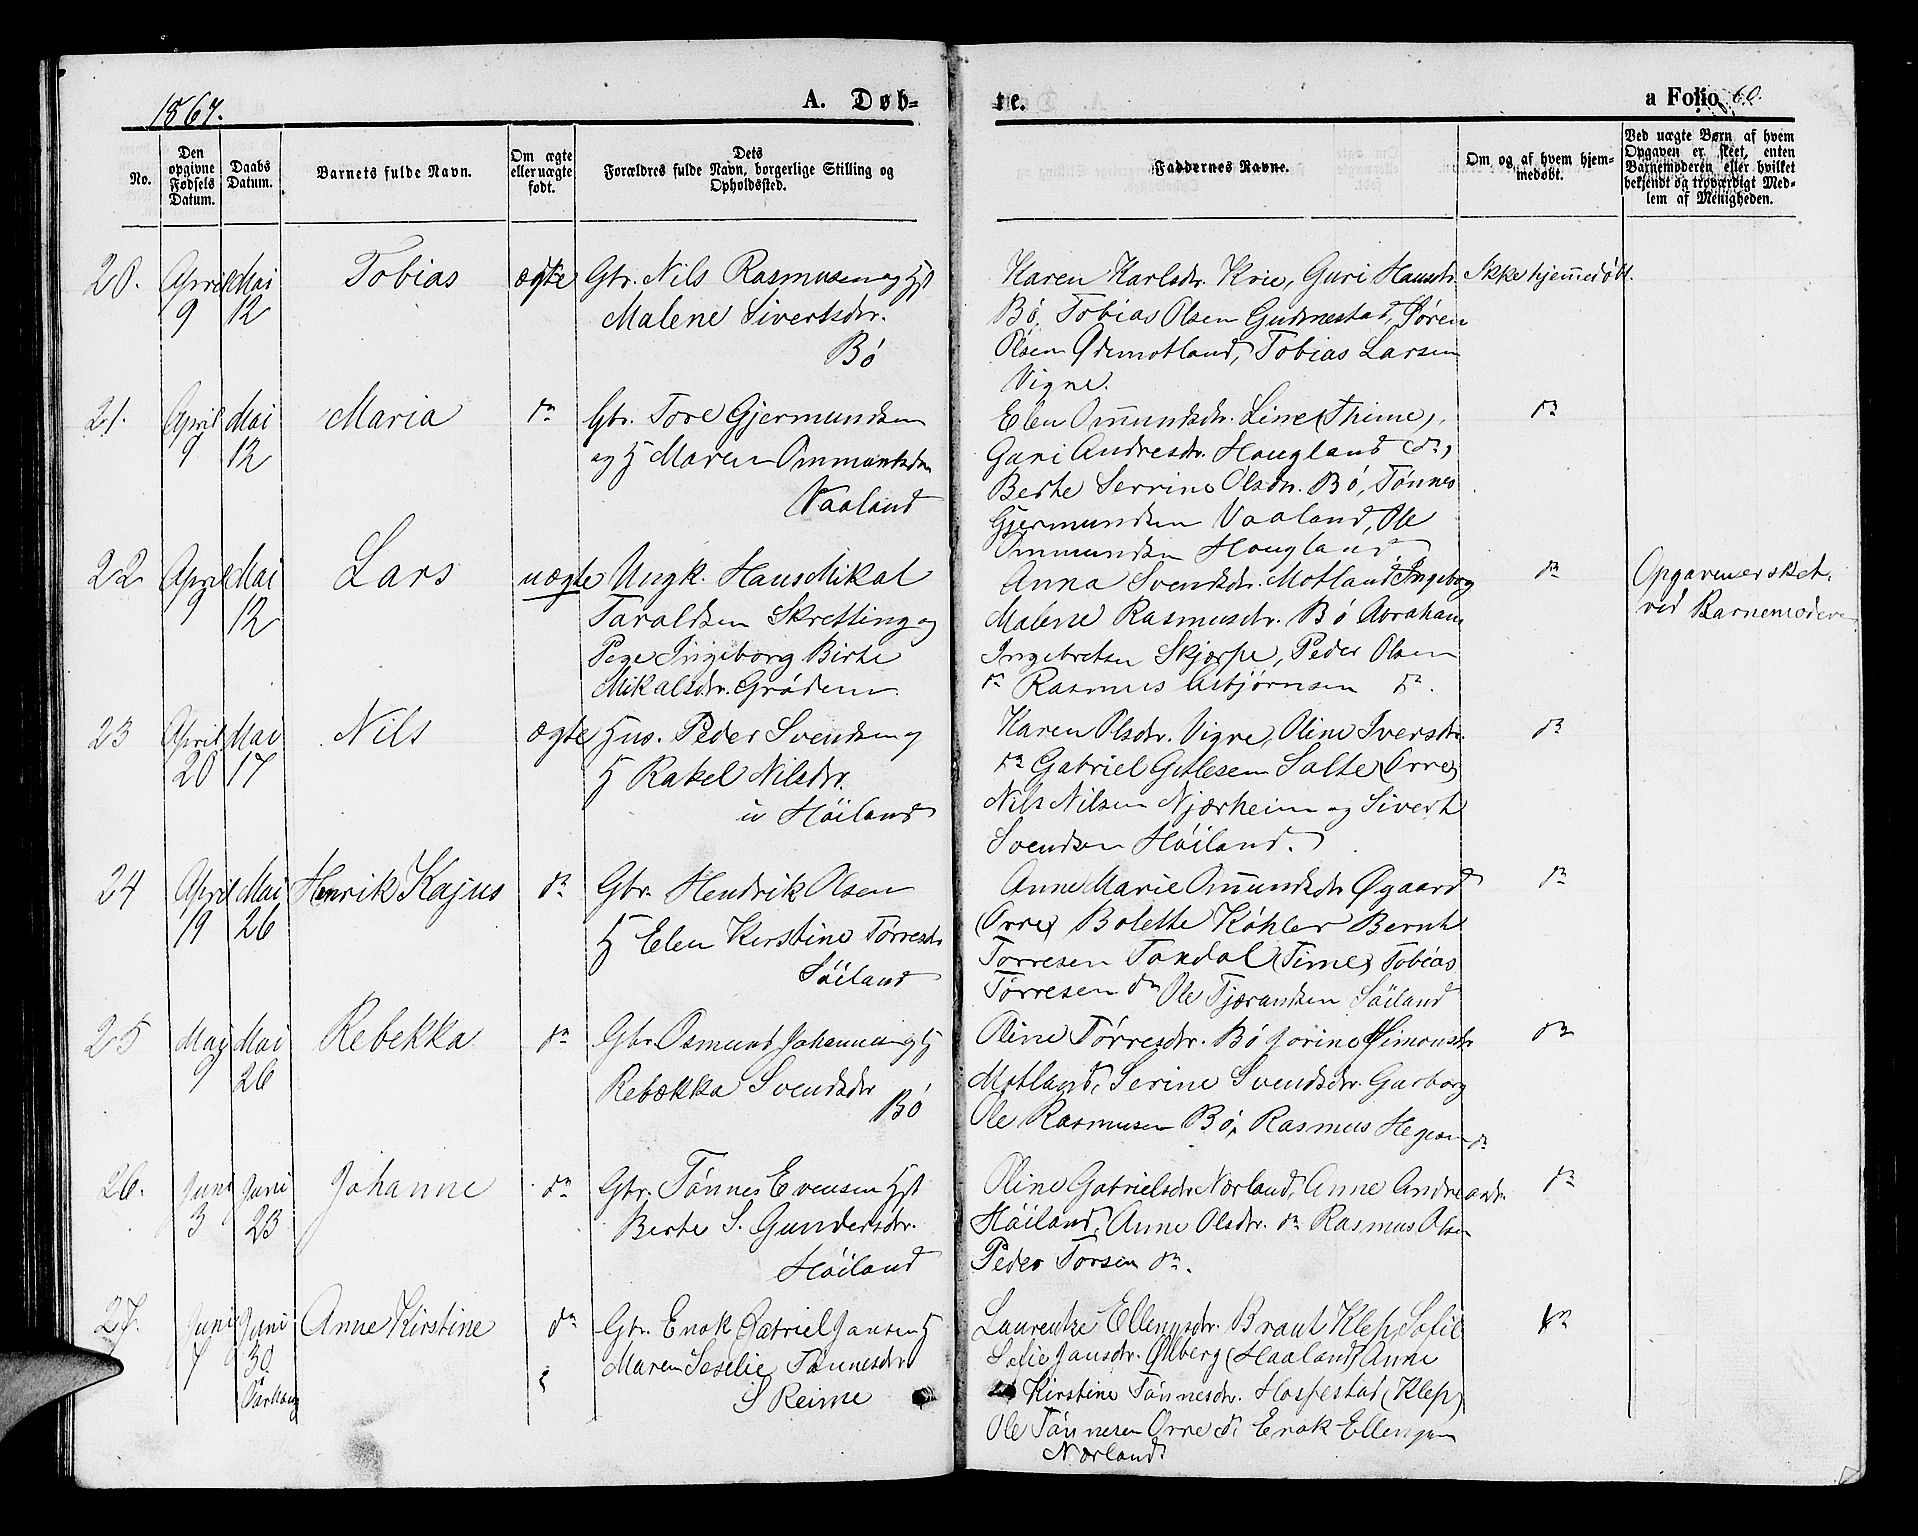 1867.
A. Døb-
te.
a Folio 60.
No.
Den opgivne Fødsels Datum.
Daabs Datum.
Barnets fulde Navn.
Om ægte eller uægte født.
Dets Forældres fulde Navn, borgerlige Stilling og Opholdssted.
Faddernes Navne.
Om og af hvem hjem-
medøbt.
Ved uægte Børn, af hvem
Opgaven er skeet, enten
Barnemoderen eller hvilket
bekjendt og troværdigt Med-
lem af Menigheden.
20. April 9 Mai 12 Tobias ægte
Gbr. Nils Rasmusen og Hst
Malene Sivertsdr.
Bø
Karen Karlsdr. Krie, Guri Hansdr.
Bø, Tobias Olsen Gudmestad, Søren
Olsen Ødemotland, Tobias Larsen
Vigne.
Ikke hjemmedøbt.
21. April 9 Mai 12 Maria do
Gbr. Tore Gjermundsen
og H Maren Ommundsdr
Vaaland
Elen Omundsdr. Line (Thime),
Guri Andresdr. Hougland do,
Berte Serrine Olsdr. Bø, Tønnes
Gjermundsen Vaaland, Ole
Ommundsen Hougland
do
22 April 9 Mai 12 Lars uægte
Ungk. Hans Mikal
Taraldsen Skretting og
Pige Ingeborg Birte
Mikalsdr. Grødem
Anna Svendsdr. Motland, Ingeborg
Malene Rasmusdr. Bø Abraham
Ingebretsen Skjærpe, Peder Olsen
do Rasmus Asbjørnsen do.
do
Opgaven er skeet
ved Barnemoderen
23 April 20 Mai 17 Nils ægte
Hus. Peder Svendsen og
H Rakel Nilsdr.
u Høiland
Karen Olsdr. Vigre, Oline Iversdr.
do Gabriel Gitlesen Salte (Orre)
Nils Nilsen Njærheim og Sivert
Svendsen Høiland.
do
24 April 19 Mai 26 Henrik Kajus do
Gbr. Hendrik Olsen
H Elen Kirstine Tørresdr
Søiland
Anne Marie Omundsdr Øgaard
(Orre) Bolette Køhler Bernt
Tørresen Tandal (Time) Tobias
Tørresen do Ole Tjærandsen Søiland
do
25 Maj 9 Mai 26 Rebekka do
Gbr Osmund Johannesen og H
Rebækka Svendsdr
Bø
Oline Tørresdr. Bø Jorine Simonsdr
Motland, Serine Svendsdr. Garborg
Ole Rasmusen Bø, Rasmus Hegesen do
do
26. Juni 3 Juni 23 Johanne do
Gbr. Tønnes Evensen Hst
Berte S. Gundersdr.
Høiland
Oline Gabrielsdr Nærland, Anne Andreasdr.
Høiland, Anne Olsdr. do Rasmus Olsen
Peder Torsen do.
do
27. Juni 7 Juni 30 Anne Kirstine do
Gbr. Enok Gabriel Jansen H
Maren Seselie Tønnesdr
S Reime
Laurentze Ellengsdr. Braut Klep, Sofie
Sofie Jansdr. Ølberg (Haaland) Anne
Kirstine Tønnesdr. Hosfestad (Klep)
Ole Tønnesen Orre do Enok Ellengsen
Nærland
do